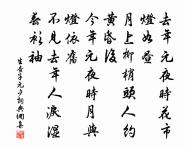 去年元夜時花市
燈如晝
月上柳梢頭人約
黃昏後
今年元夜時月與
燈依舊
不見去年人淚濕
春衫袖
生查子元夕詞典網書